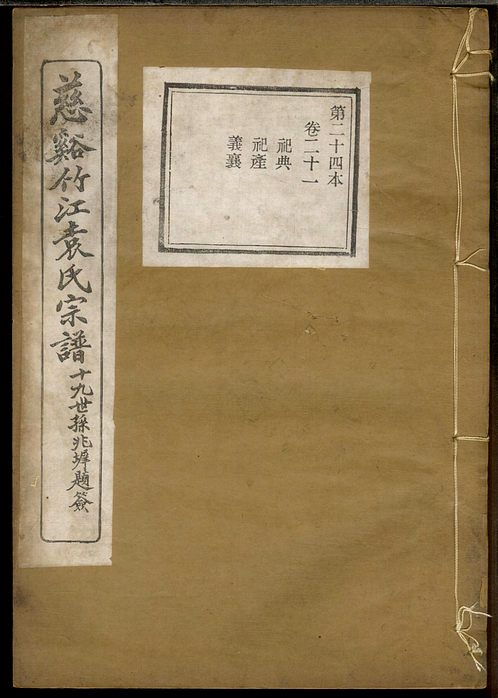 慈谿竹江袁氏宗譜
十九世孫兆墀題簽
第二十四本
卷二十一
祀典
祀產
義襄